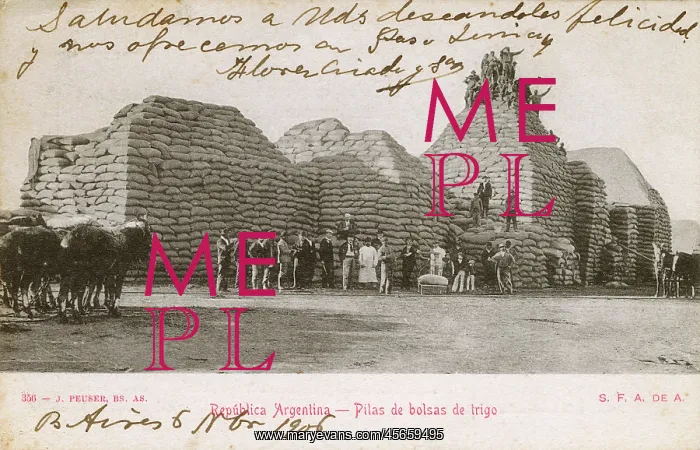 Saludamos a Uds deseandoles felicidad
y nos ofrecemos
Flores
ME
PL
ME
PL
356 — J. PEUSER, BS. AS.
República Argentina — Pilas de bolsas de trigo
S. F. A. DE A.
B Aires 6 Nbr 1906
www.maryevans.com/45659495